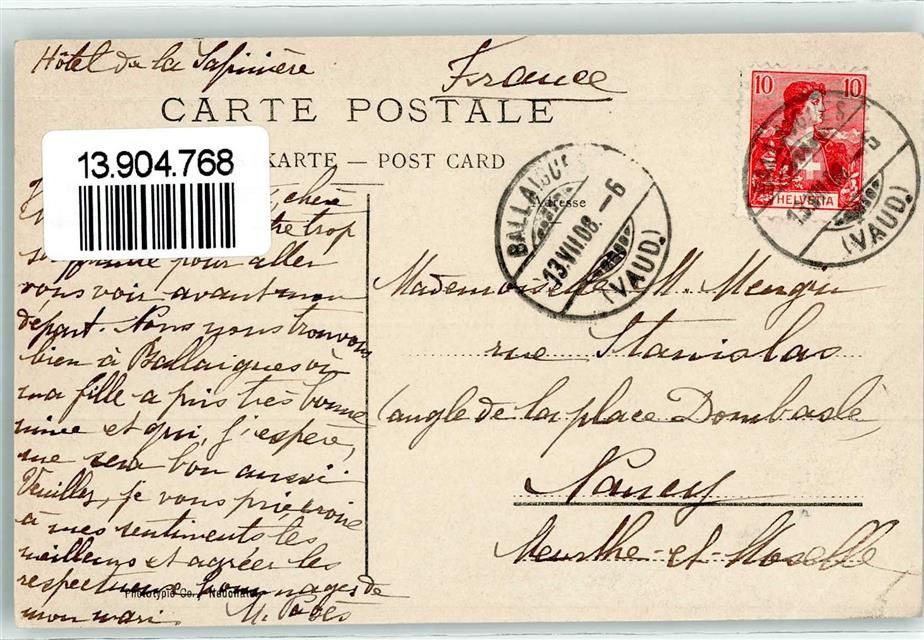 Hôtel de la Sapinière
France
CARTE POSTALE
KARTE — POST CARD
13.904.768
Adresse
10 10
HELVETIA
BALLAIGUES
13.VII.08. – 6
(VAUD.)
13.VII.08
(VAUD.)
chère
trop
souffrante pour aller
vous voir avant mon
départ. Nous nous trouvons
bien à Ballaigues où
ma fille a pris très bonne
mine et qui, j'espère,
me sera bon aussi.
Veuillez, je vous prie croire
à mes sentiments les
meilleurs et agréer les
respectueux hommages de
mon mari. M.
Phototypie Co., Neuchâtel
Mademoiselle M. Mengin
rue Stanislas
(angle de la place Dombasle)
Nancy
Meurthe-et-Moselle